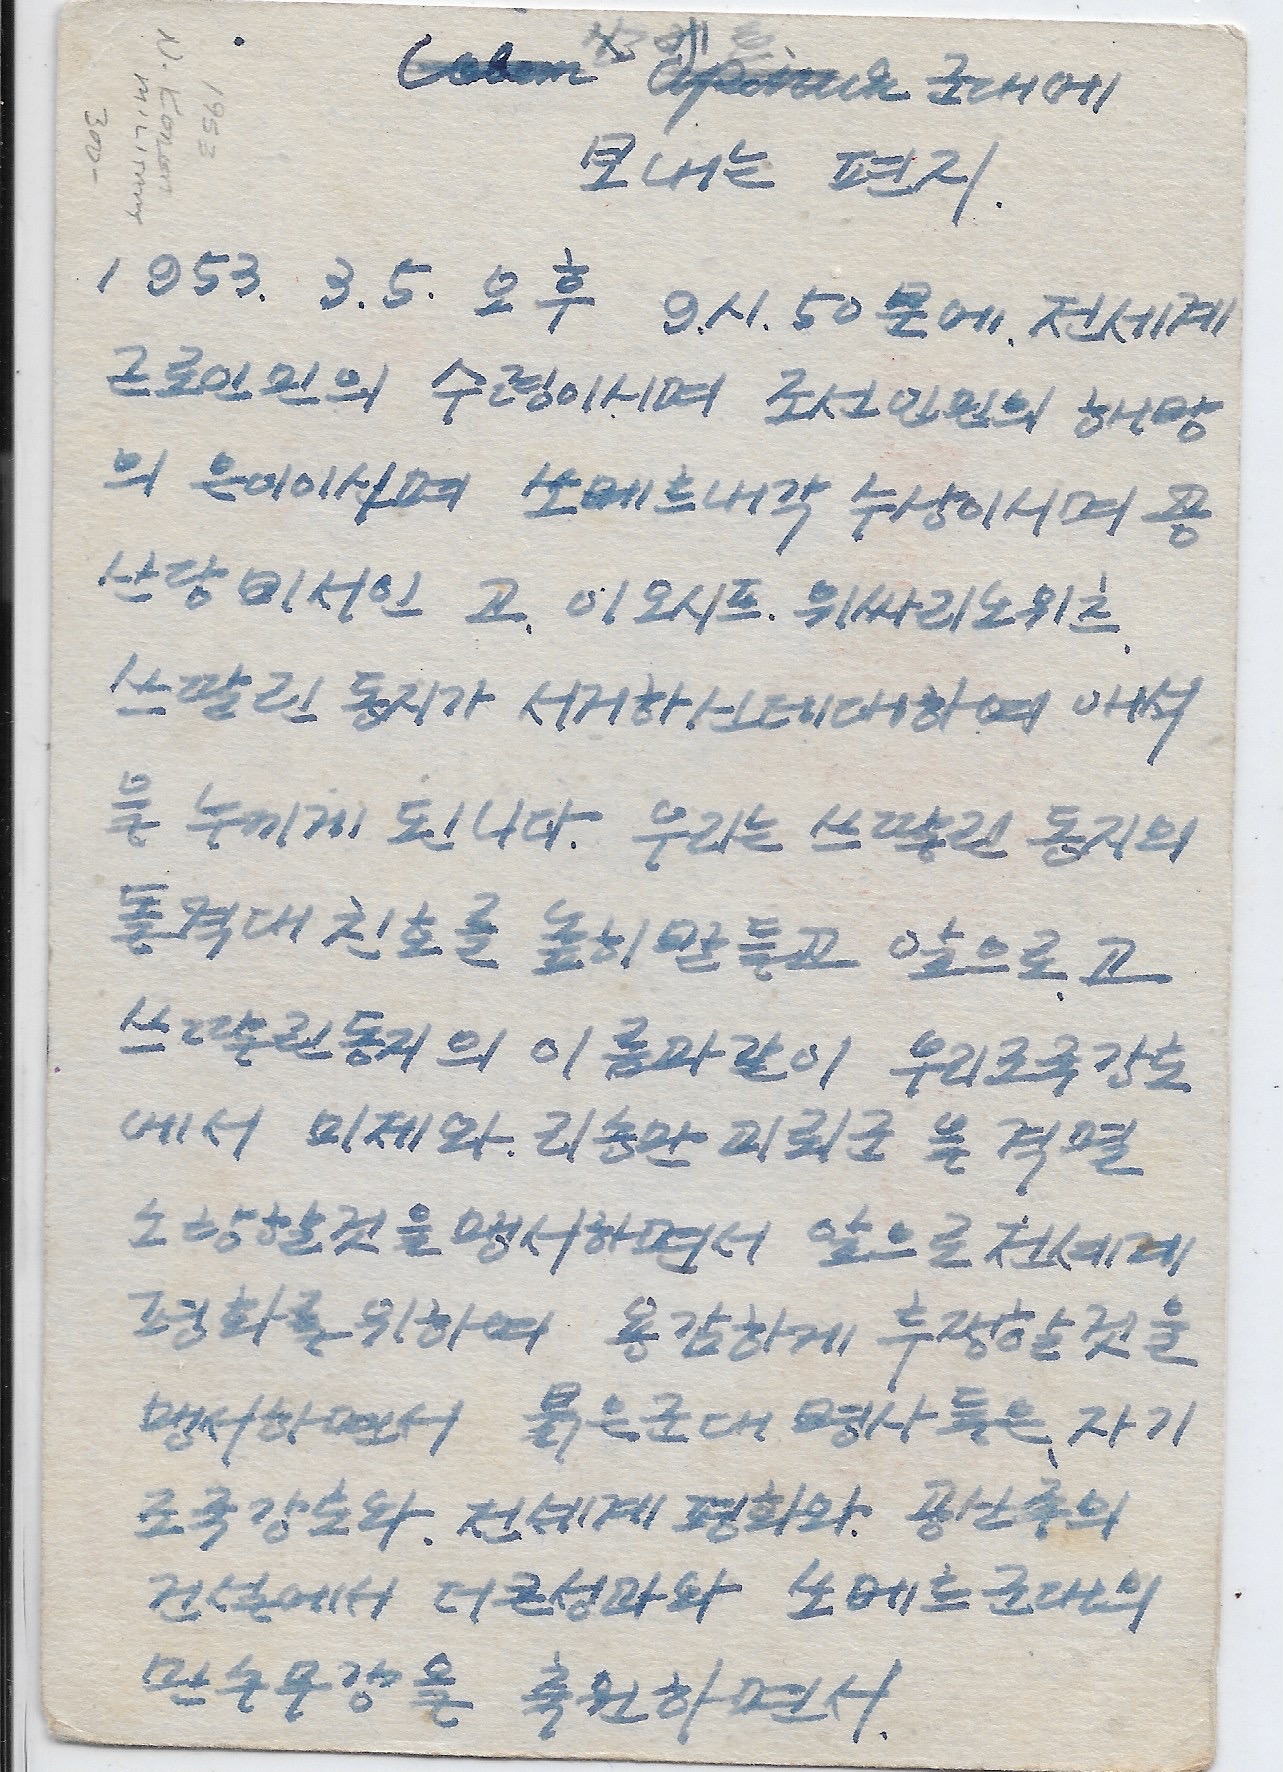 쏘베트 군대에
보내는 편지.
1953. 3.5. 오후 9.시.50분에. 전세계
근로인민의 수령이시며 조선인민의 해방
의 은인이시며 쏘베트내각 수상이시며 공
산당비서인 고. 이오시프. 위싸리노위츠.
쓰딸린 동지가 서거하신데대하여 애석
을 누끼게 된니다. 우리는 쓰딸린 동지의
돌격대 친호를 높히 받들고 앞으로 고
쓰딸린동지의 이름과같이 우리조국강토
에서 미제와. 리승만 괴뢰군을 격멸
소탕할것을 맹서하면서 앞으로 전세계
평화를위하여 용감하게 투쟁할것을
맹서하면서 붉은군대 병사들은 자기
조국강토와. 전세계 평화와. 공산주의
건설에서 더큰성과와 쏘베트군대의
만수무강을 축원하면서.
1953
N. Korean
Military
300-